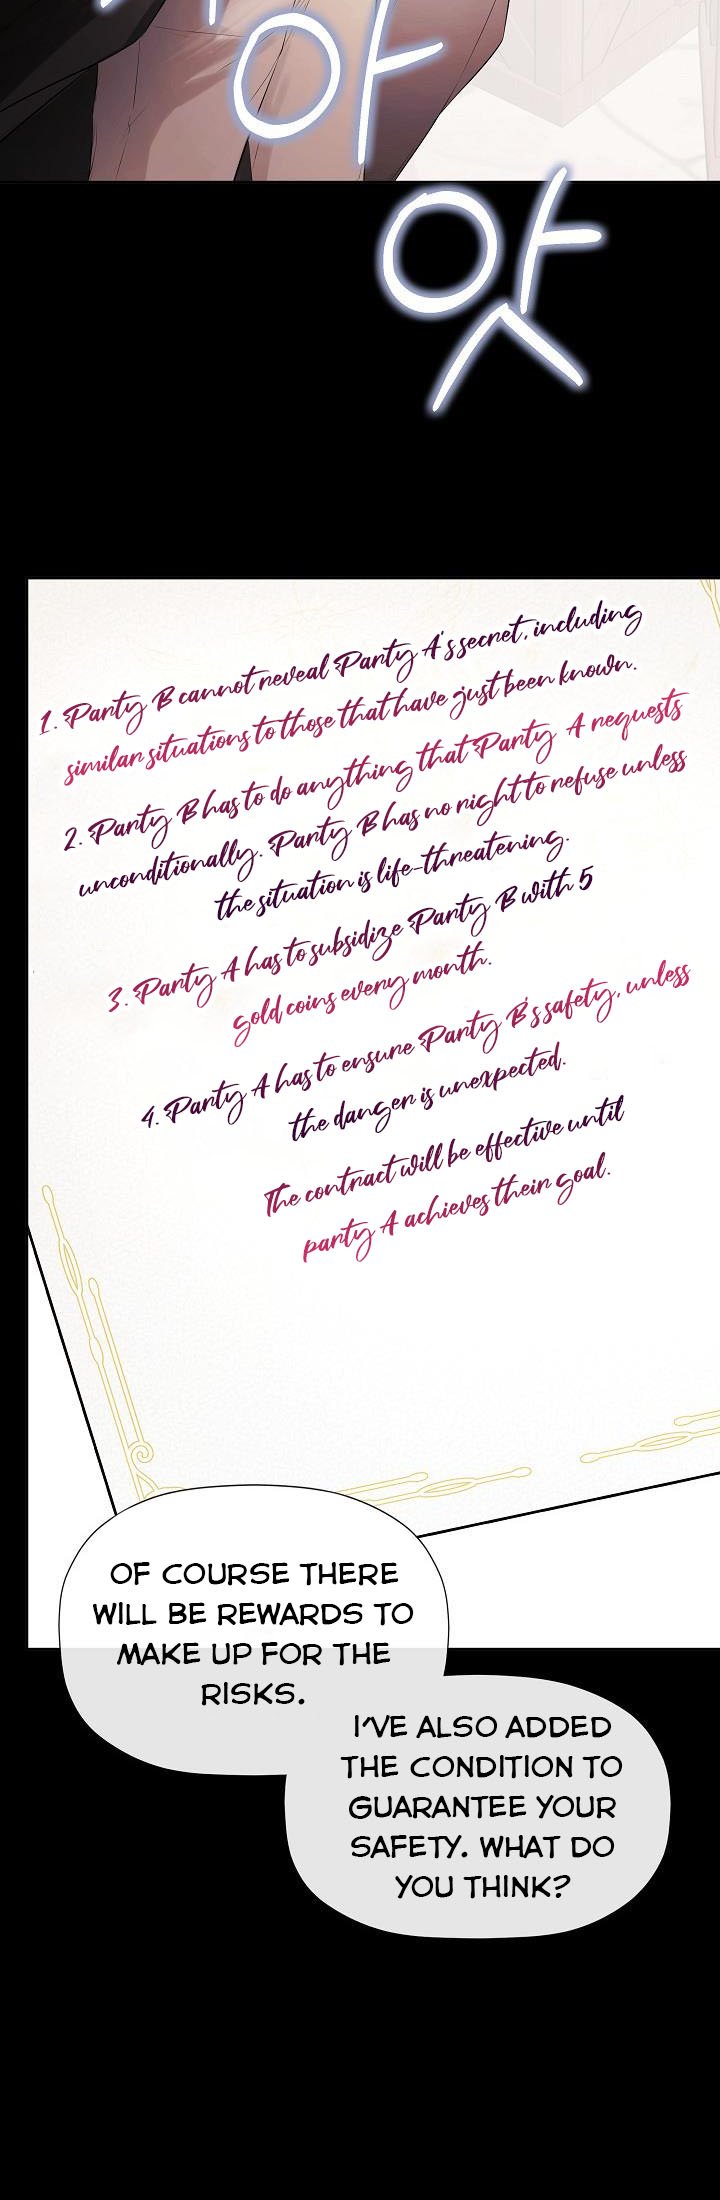 야
얏
1. Party B cannot reveal Party A's secret, including
similar situations to those that have just been known.
2. Party B has to do anything that Party A requests
unconditionally. Party B has no right to refuse unless
the situation is life-threatening.
3. Party A has to subsidize Party B with 5
gold coins every month.
4. Party A has to ensure Party B's safety, unless
the danger is unexpected.
The contract will be effective until
party A achieves their goal.
OF COURSE THERE
WILL BE REWARDS TO
MAKE UP FOR THE
RISKS.
I'VE ALSO ADDED
THE CONDITION TO
GUARANTEE YOUR
SAFETY. WHAT DO
YOU THINK?